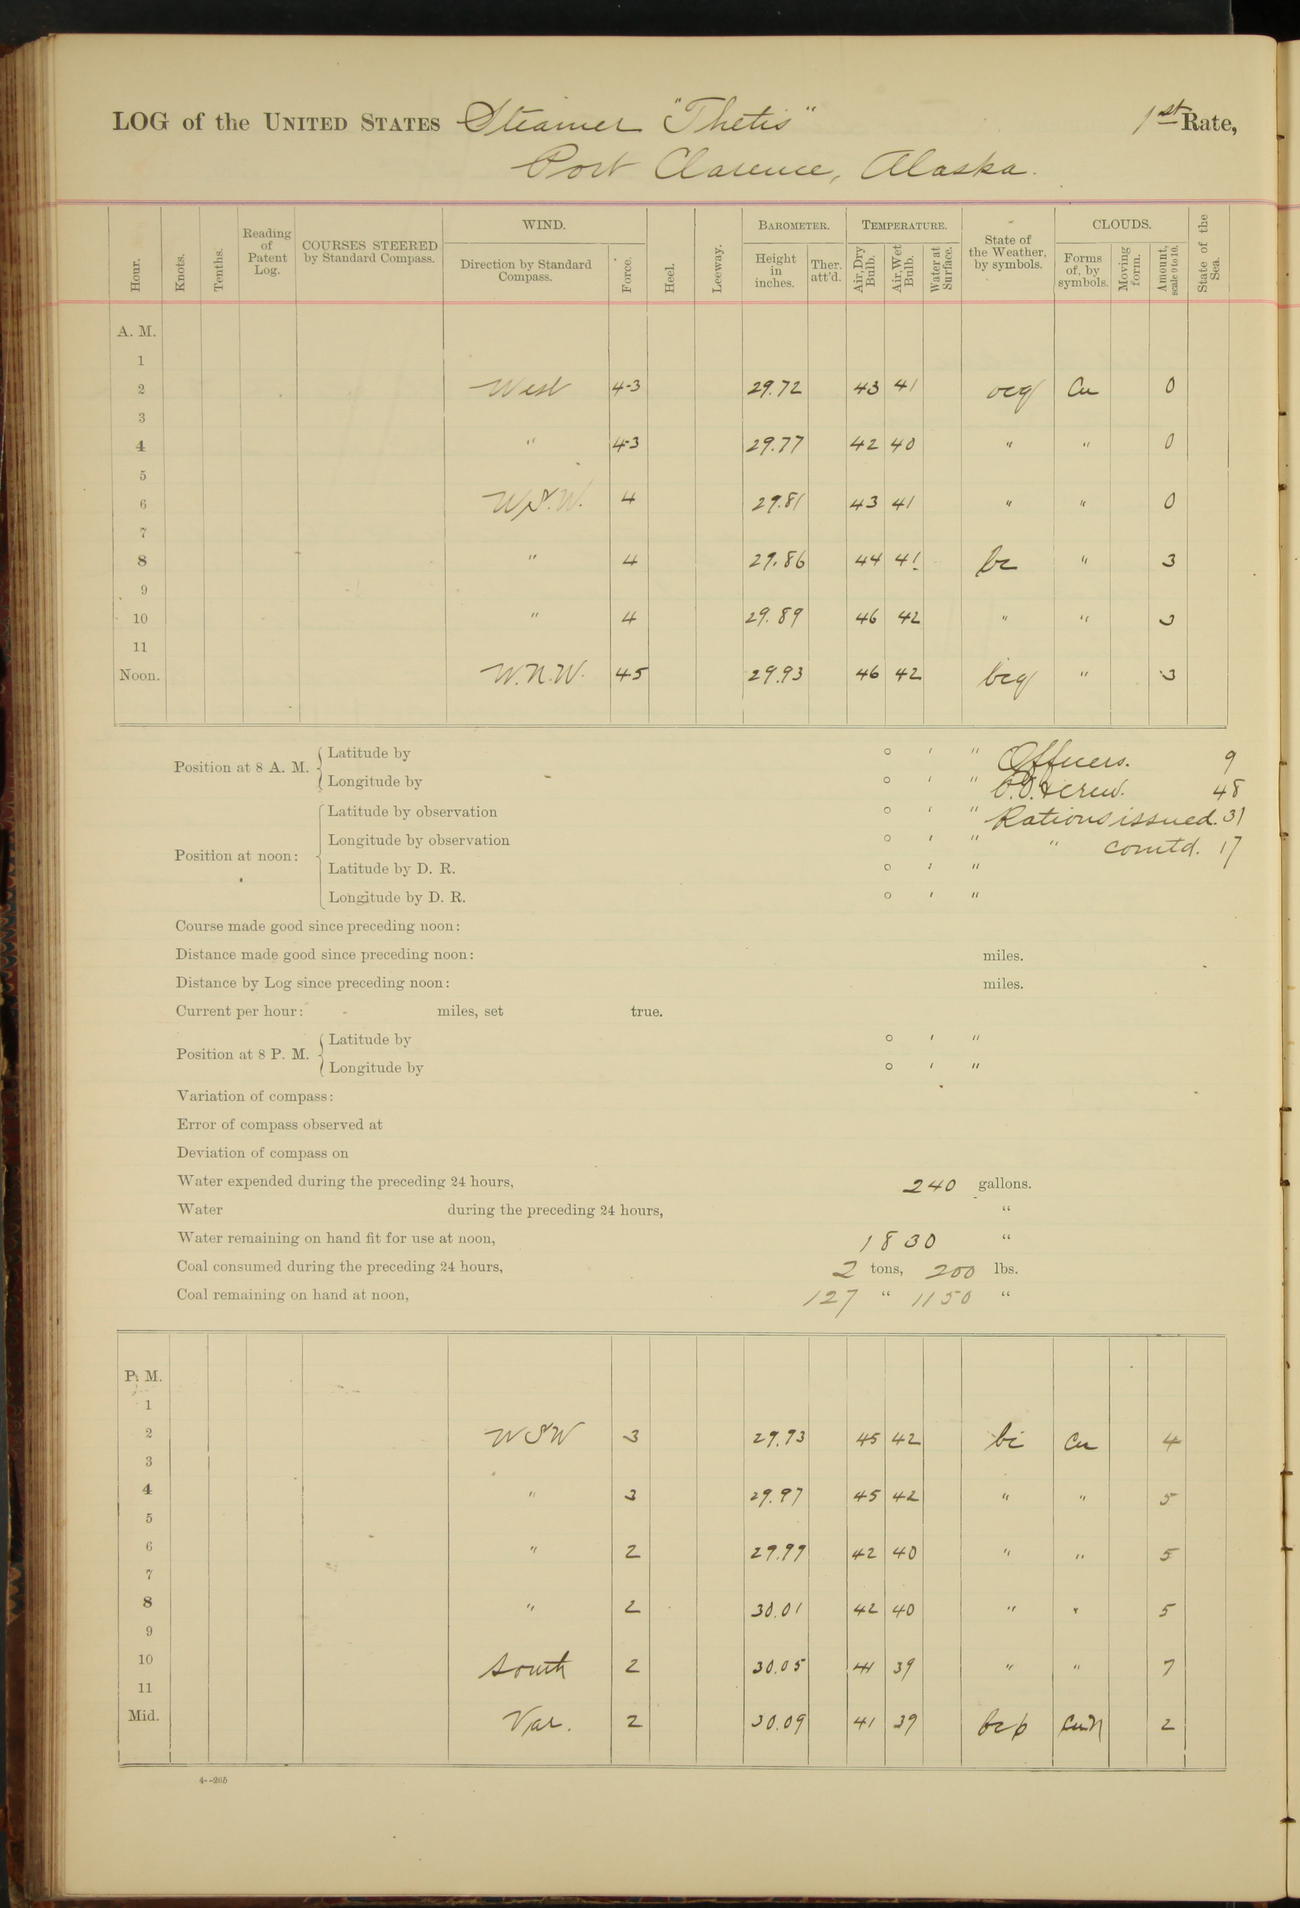 LOG of the UNITED STATES Steamer "Thetis" 1st Rate,
Port Clarence, Alaska.
Hour. Knots. Tenths. Reading of Patent Log. COURSES STEERED by Standard Compass. WIND. Direction by Standard Compass. Force. Heel. Leeway. BAROMETER. Height in inches. Ther. att'd. TEMPERATURE. Air, Dry Bulb. Air, Wet Bulb. Water at Surface. State of the Weather, by symbols. CLOUDS. Forms of, by symbols. Moving form. Amount, scale 0 to 10. State of the Sea.
A. M.
1
2 West 4-3 29.72 43 41 ocq Cu 0
3
4 " 4-3 29.77 42 40 " " 0
5
6 W.S.W. 4 29.81 43 41 " " 0
7
8 " 4 29.86 44 41 bc " 3
9
10 " 4 29.89 46 42 " " 3
11
Noon. W.N.W. 4-5 29.93 46 42 bcq " 3
Position at 8 A. M. Latitude by ° ' " Officers. 9
Longitude by ° ' " & crew. 48
Position at noon: Latitude by observation ° ' " Rations issued. 31
Longitude by observation ° ' " " comtd. 17
Latitude by D. R. ° ' "
Longitude by D. R. ° ' "
Course made good since preceding noon:
Distance made good since preceding noon: miles.
Distance by Log since preceding noon: miles.
Current per hour: miles, set true.
Position at 8 P. M. Latitude by ° ' "
Longitude by ° ' "
Variation of compass:
Error of compass observed at
Deviation of compass on
Water expended during the preceding 24 hours, 240 gallons.
Water during the preceding 24 hours, "
Water remaining on hand fit for use at noon, 1830 "
Coal consumed during the preceding 24 hours, 2 tons, 200 lbs.
Coal remaining on hand at noon, 127 " 1150 "
P. M.
1
2 WSW 3 29.93 45 42 bc Cu 4
3
4 " 3 29.97 45 42 " " 5
5
6 " 2 29.99 42 40 " " 5
7
8 " 2 30.01 42 40 " " 5
9
10 South 2 30.05 41 39 " " 7
11
Mid. Var. 2 30.09 41 39 bcp 2
4--205